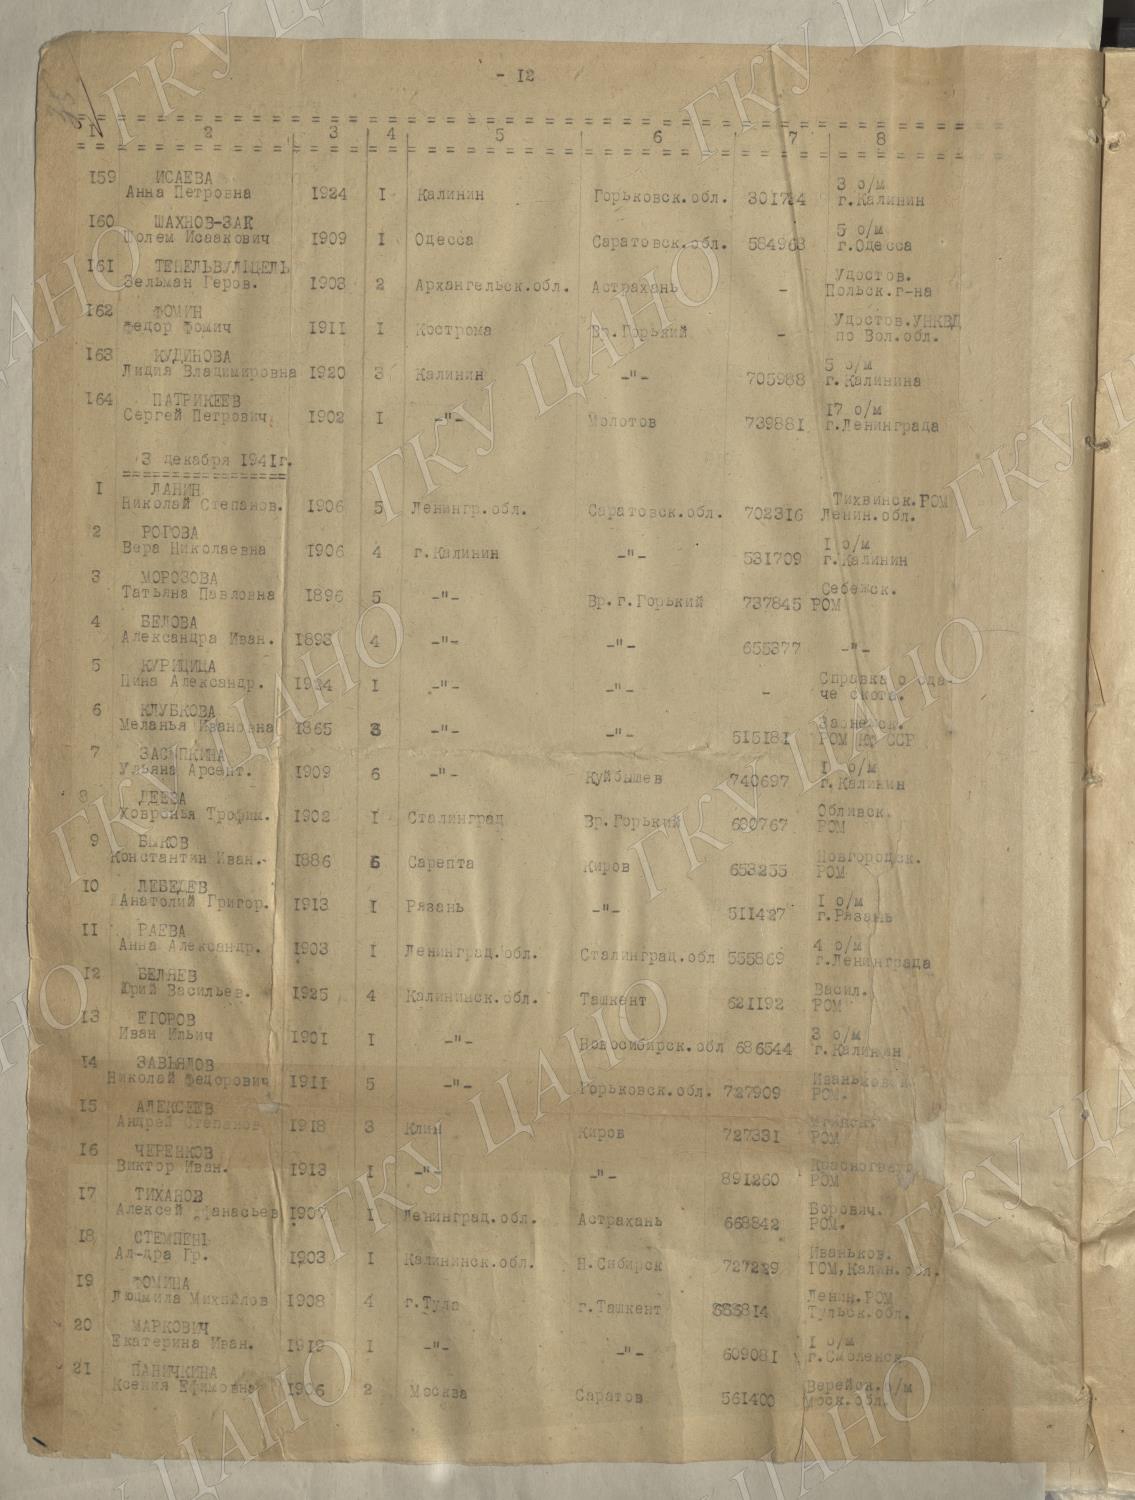 - 12
1 2 3 4 5 6 7 8
159 ИСАЕВА 3 о/м
Анна Петровна 1924 1 Калинин Горьковск.обл. 301724 г.Калинин
160 ШАХНОВ-ЗАК 5 о/м
Шолем Исаакович 1909 1 Одесса Саратовск.обл. 584963 г.Одесса
161 Удостов.
Зельман Геров. 1903 2 Архангельск.обл. Астрахань - Польск.г-на
162 ФОМИН Удостов.УНКВД
Федор Фомич 1911 1 Кострома Вр.Горький - по Вол.обл.
163 КУДИНОВА 5 о/м
Лидия Владимировна 1920 3 Калинин -"- 705988 г.Калинина
164 ПАТРИКЕЕВ 17 о/м
Сергей Петрович 1902 1 -"- Молотов 739881 г.Ленинграда
3 декабря 1941г.
1 ЛАНИН Тихвинск.РОМ
Николай Степанов. 1906 5 Ленингр.обл. Саратовск.обл. 702316 Ленин.обл.
2 РОГОВА 1 о/м
Вера Николаевна 1906 4 г.Калинин -"- 531709 г.Калинин
3 МОРОЗОВА Себежск.
Татьяна Павловна 1896 5 -"- Вр.г.Горький 737845 РОМ
4 БЕЛОВА
Александра Иван. 1893 4 -"- -"- 655377 -"-
5 КУРИЦИНА Справка о сда-
Нина Александр. 1924 1 -"- -"- - че скота.
6 КЛУБКОВА
Меланья Ивановна 1865 3 -"- -"- 515181 РОМ ССР
7 ЗАСЫПКИНА 1 о/м
Ульяна Арсент. 1909 6 -"- Куйбышев 740697 г.Калинин
8 ДЕЕВА Обливск.
Ховронья Трофим. 1902 1 Сталинград Вр.Горький 690767 РОМ
9 БЫКОВ Новгородск.
Константин Иван. 1886 6 Сарепта Киров 653255 РОМ
10 ЛЕБЕДЕВ 1 о/м
Анатолий Григор. 1913 1 Рязань -"- 511427 г.Рязань
11 РАЕВА 4 о/м
Анна Александр. 1903 1 Ленинград.обл. Сталинград.обл 555869 г.Ленинграда
12 БЕЛЯЕВ Васил.
Юрий Васильев. 1925 4 Калининск.обл. Ташкент 621192 РОМ
13 ЕГОРОВ 3 о/м
Иван Ильич 1901 1 -"- Новосибирск.обл 686544 г.Калинин
14 ЗАВЬЯЛОВ
Николай Федорович 1911 5 -"- Горьковск.обл. 727909 РОМ.
15 АЛЕКСЕЕВ
Андрей Степанов 1918 3 Клин Киров 727331 РОМ
16 ЧЕРЕНКОВ
Виктор Иван. 1913 1 -"- -"- 891260 РОМ
17 ТИХАНОВ Борович.
Алексей Афанасьев 1907 1 Ленинград.обл. Астрахань 668842 РОМ.
18 СТЕМПЕНЬ Иваньков.
Ал-дра Гр. 1903 1 Калининск.обл. Н.Сибирск 727229 РОМ,Калин.обл.
19 ФОМИНА Ленин.РОМ
Людмила Михайлов 1908 4 г.Тула г.Ташкент 555814 Тульск.обл.
20 МАРКОВИЧ 1 о/м
Екатерина Иван. 1919 1 -"- -"- 609081 г.Смоленск
21 ПАНИЧКИНА Верейск.о/м
Ксения Ефимовна 1906 2 Москва Саратов 561400 Моск.обл.
ГКУ ЦАНО